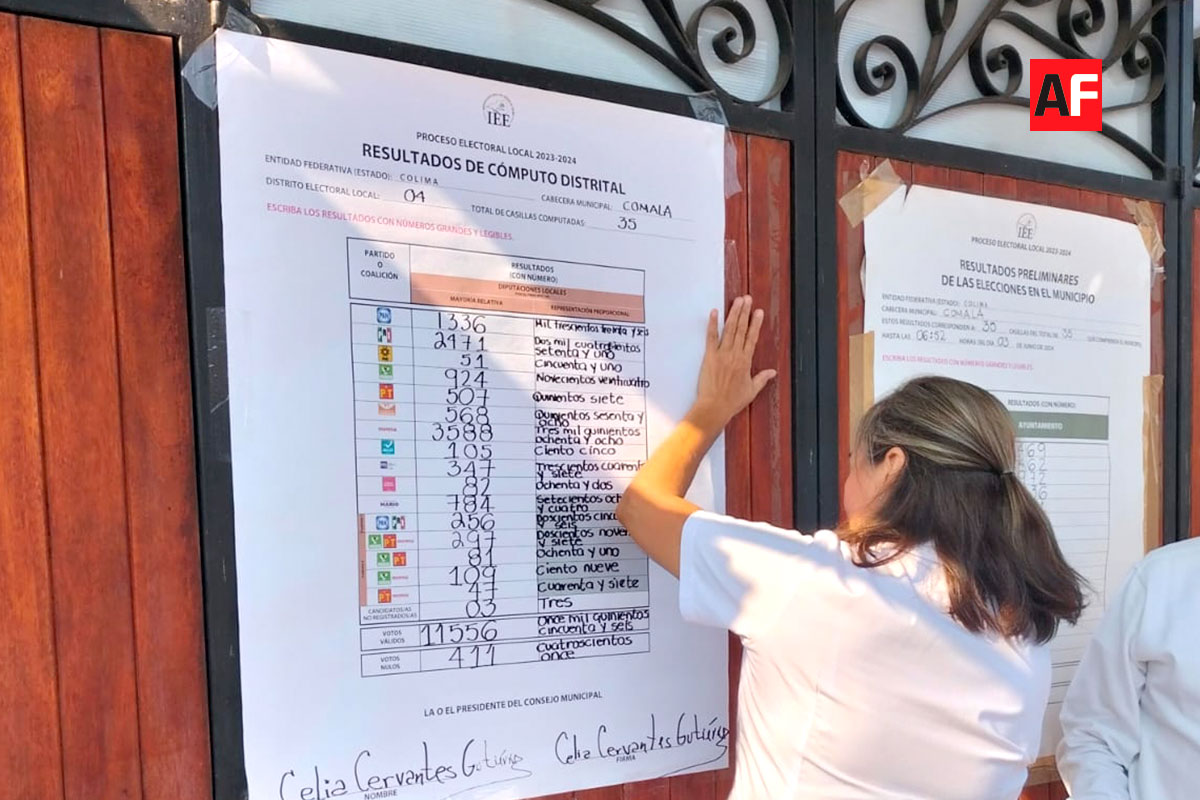 AF
IEE
PROCESO ELECTORAL LOCAL 2023-2024
RESULTADOS DE CÓMPUTO DISTRITAL
ENTIDAD FEDERATIVA (ESTADO): COLIMA
DISTRITO ELECTORAL LOCAL: 04 CABECERA MUNICIPAL: COMALA
TOTAL DE CASILLAS COMPUTADAS: 35
ESCRIBA LOS RESULTADOS CON NÚMEROS GRANDES Y LEGIBLES.
PARTIDO O COALICIÓN
RESULTADOS (CON NÚMERO)
DIPUTACIONES LOCALES
MAYORÍA RELATIVA REPRESENTACIÓN PROPORCIONAL
PAN 1336 Mil trescientos treinta y seis
PRI 2471 Dos mil cuatrocientos setenta y uno
51 Cincuenta y uno
924 Novecientos veinticuatro
PT 507 Quinientos siete
568 Quinientos sesenta y ocho
morena 3588 Tres mil quinientos ochenta y ocho
105 Ciento cinco
347 Trescientos cuarent y siete
82 Ochenta y dos
784 Setecientos och y cuatro
PAN PRI 256 Doscientos cinc y seis
PT morena 297 Doscientos nove y siete
PT 81 Ochenta y uno
morena 109 Ciento nueve
PT morena 47 Cuarenta y siete
CANDIDATOS/AS NO REGISTRADOS/AS 03 Tres
VOTOS VÁLIDOS 11556 Once mil quinientos cincuenta y seis
VOTOS NULOS 411 Cuatroscientos once
LA O EL PRESIDENTE DEL CONSEJO MUNICIPAL
Celia Cervantes Gutiérrez Celia Cervantes Gutiérrez
NOMBRE FIRMA
IEE
PROCESO ELECTORAL LOCAL 2023-2024
RESULTADOS PRELIMINARES
DE LAS ELECCIONES EN EL MUNICIPIO
ENTIDAD FEDERATIVA (ESTADO): COLIMA
CABECERA MUNICIPAL: COMALA
ESTOS RESULTADOS CORRESPONDEN A: 35 CASILLAS DEL TOTAL DE 35 QUE COMPRENDE EL MUNICIPIO,
HASTA LAS 06:52 HORAS DEL DÍA 03 DE JUNIO DE 2024
ESCRIBA LOS RESULTADOS CON NÚMEROS GRANDES Y LEGIBLES.
RESULTADOS (CON NÚMERO)
AYUNTAMIENTO